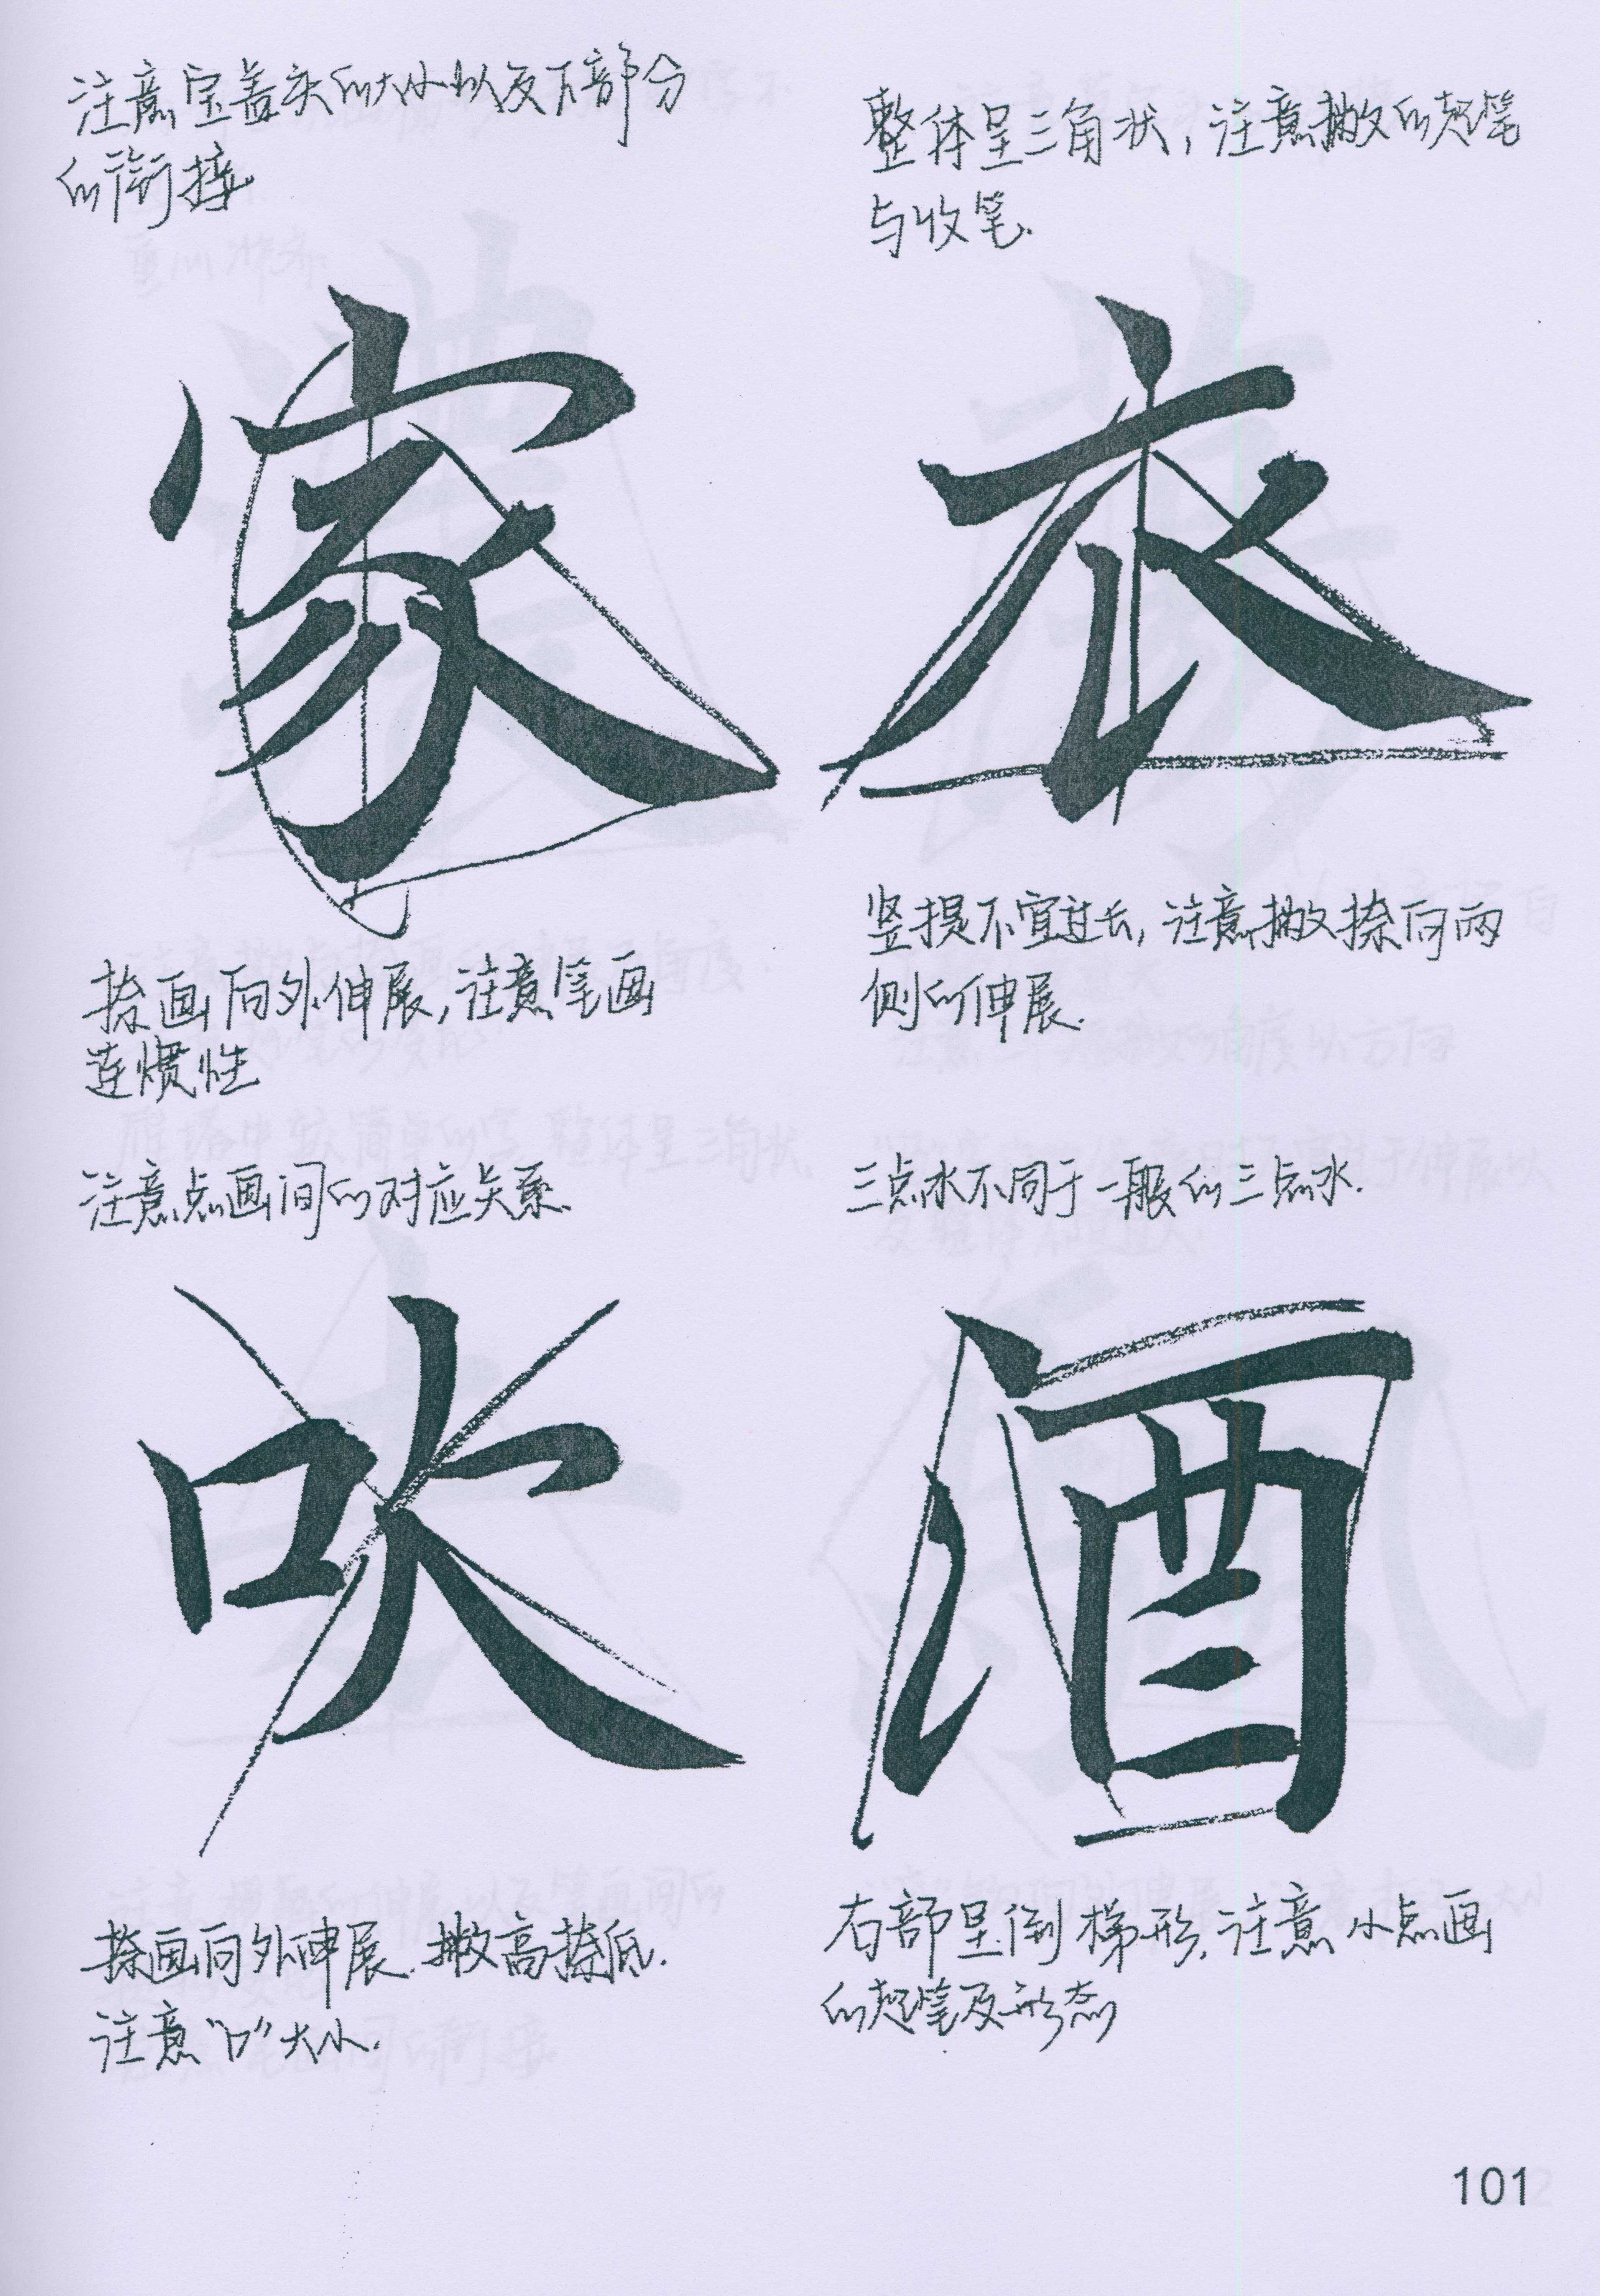 注意宝盖头的大小以及下部分
的衔接
家
捺画向外伸展,注意笔画
连惯性
整体呈三角状,注意撇的起笔
与收笔.
衣
竖提不宜过长,注意撇捺向两
侧的伸展.
注意点画间的对应关系.
吹
捺画向外伸展.撇高捺低.
注意“口”大小.
三点水不同于一般的三点水.
酒
右部呈倒梯形.注意小点画
的起笔及形态
101